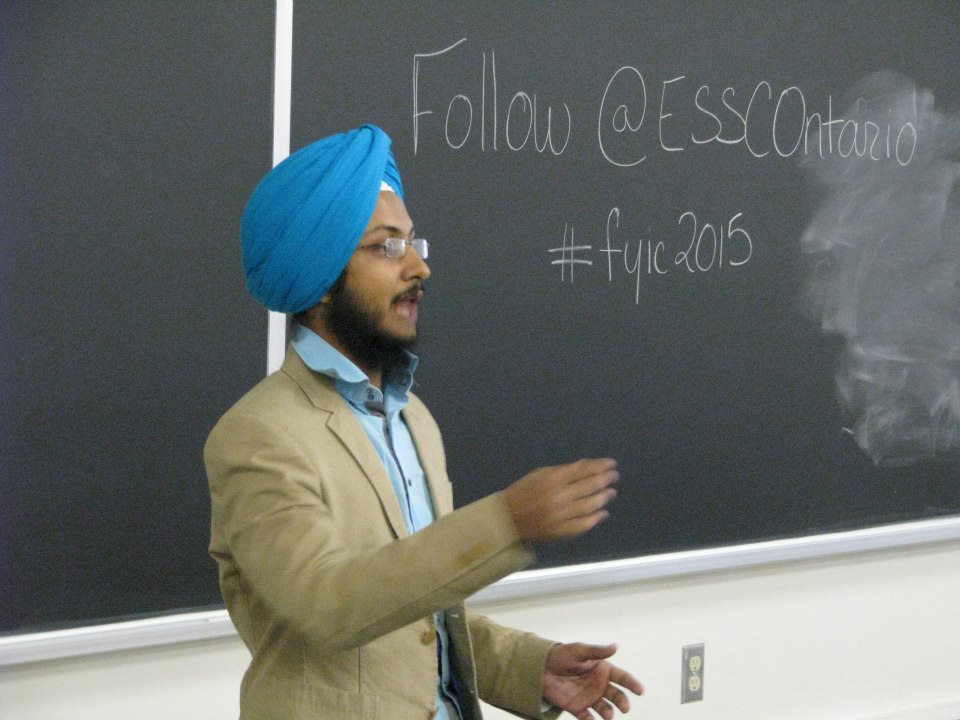 Follow @ESSCOntario
#fyic2015